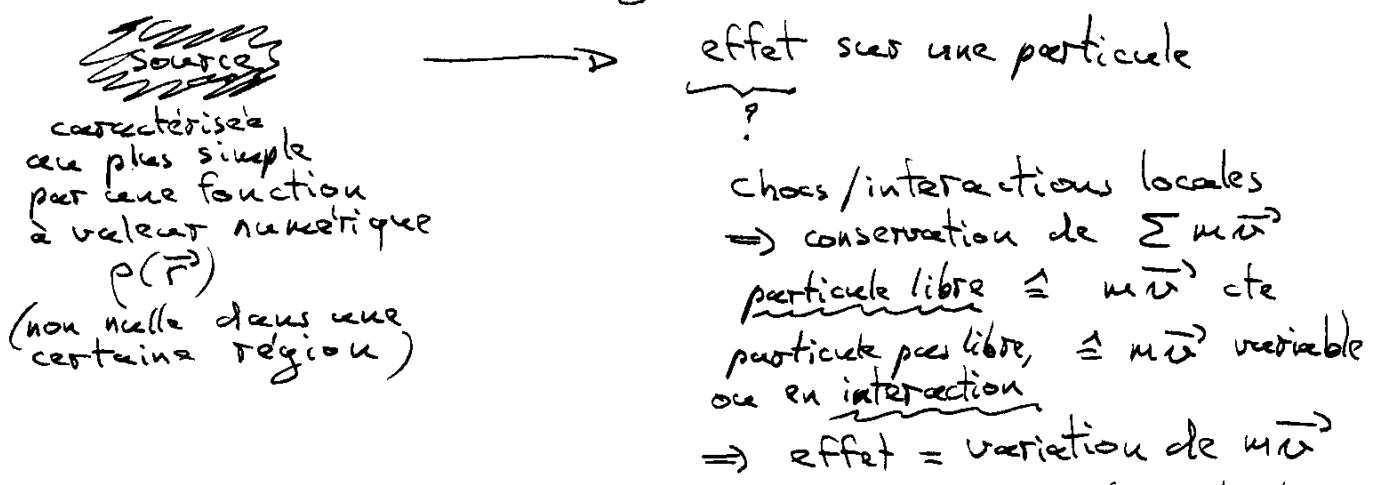 source
caractérisée
au plus simple
par une fonction
à valeur numérique
ρ(r⃗)
(non nulle dans une
certaine région)
effet sur une particule
?
chocs/interactions locales
⇒ conservation de Σ m v⃗
particule libre ≙ m v⃗ cte
particule pas libre, ≙ m v⃗ variable
ou en interaction
⇒ effet = variation de m v⃗